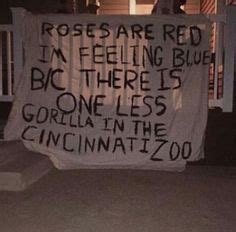 ROSES ARE RED
IM FEELING BLUE
B/C THERE IS
ONE LESS
GORILLA IN THE
CINCINNATI ZOO